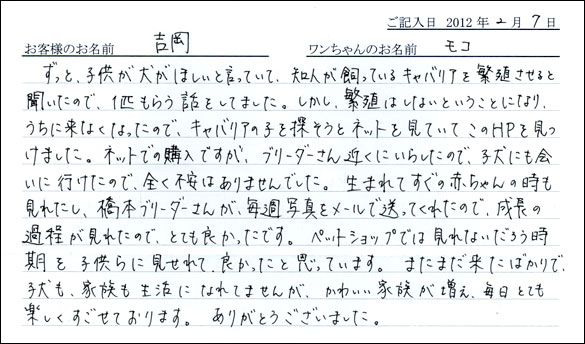 ご記入日 2012年 2月 7日
お客様のお名前 吉岡 ワンちゃんのお名前 モコ
ずっと、子供が犬がほしいと言っていて、知人が飼っているキャバリアを繁殖させると
聞いたので、1匹もらう話をしてました。しかし、繁殖はしないということになり、
うちに来なくなったので、キャバリアの子を探そうとネットを見ていてこのHPを見つ
けました。ネットでの購入ですが、ブリーダーさん近くにいらしたので、子犬にも会
いに行けたので、全く不安はありませんでした。生まれてすぐの赤ちゃんの時も
見れたし、橋本ブリーダーさんが、毎週写真をメールで送ってくれたので、成長の
過程が見れたので、とても良かったです。ペットショップでは見れないだろう時
期を子供らに見せれて、良かったと思っています。まだまだ来たばかりで、
子犬も、家族も生活になれてませんが、かわいい家族が増え、毎日とても
楽しくすごせております。ありがとうございました。